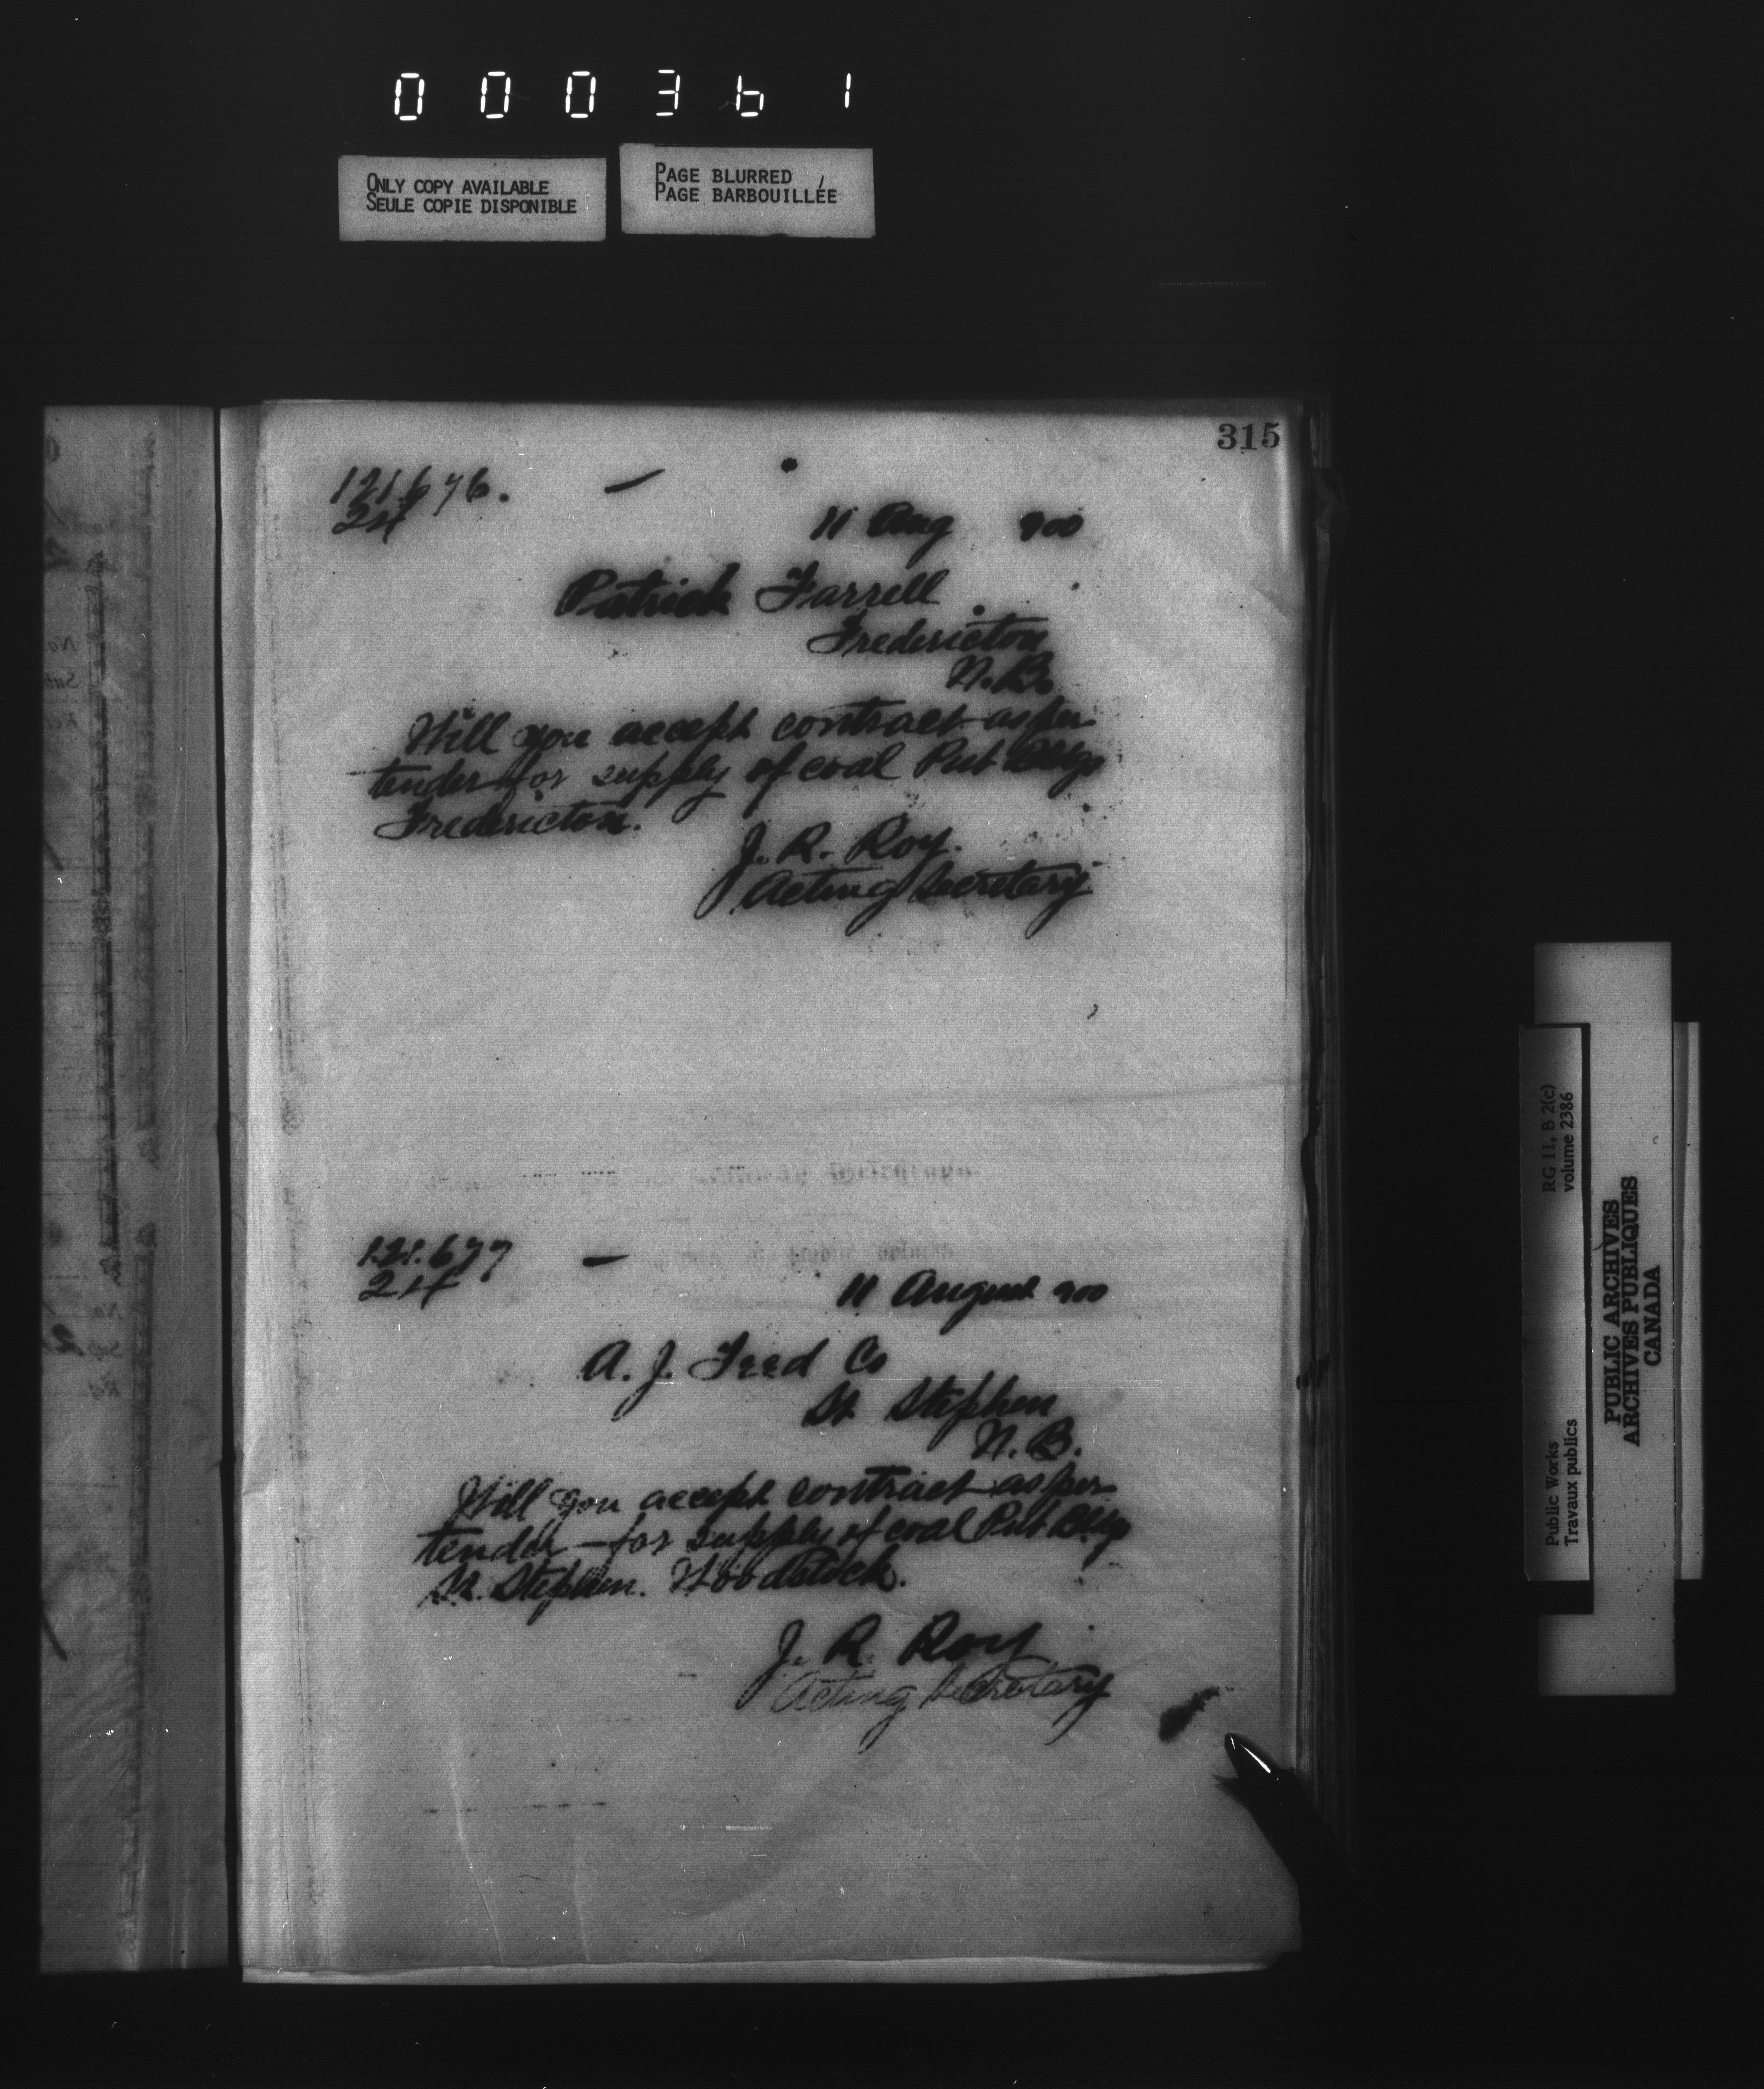 000361
ONLY COPY AVAILABLE
SEULE COPIE DISPONIBLE
PAGE BLURRED
PAGE BARBOUILLÉE
315
121.676.
24
11 Aug 900
Patrick Farrell
Fredericton
N.B.
Will you accept contract as per
tender for supply of coal Pub Bldgs
Fredericton.
J. R. Roy.
Acting Secretary
121.677
24
11 August 900
A. J. Fred Co
St. Stephen
N. B.
Will you accept contract as per
tender for supply of coal Pub Bldgs
St. Stephen. Woodstock.
J. R. Roy
Acting Secretary
RG 11, B 2(c)
volume 2386
Public Works
Travaux publics
PUBLIC ARCHIVES
ARCHIVES PUBLIQUES
CANADA